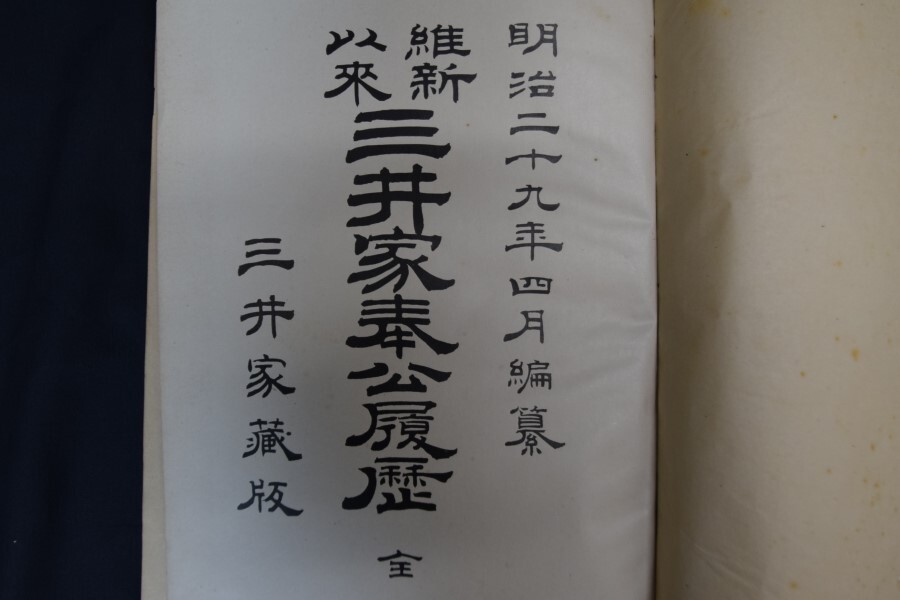 明治二十九年四月編纂
維新以來三井家奉公履歷 全
三井家藏版